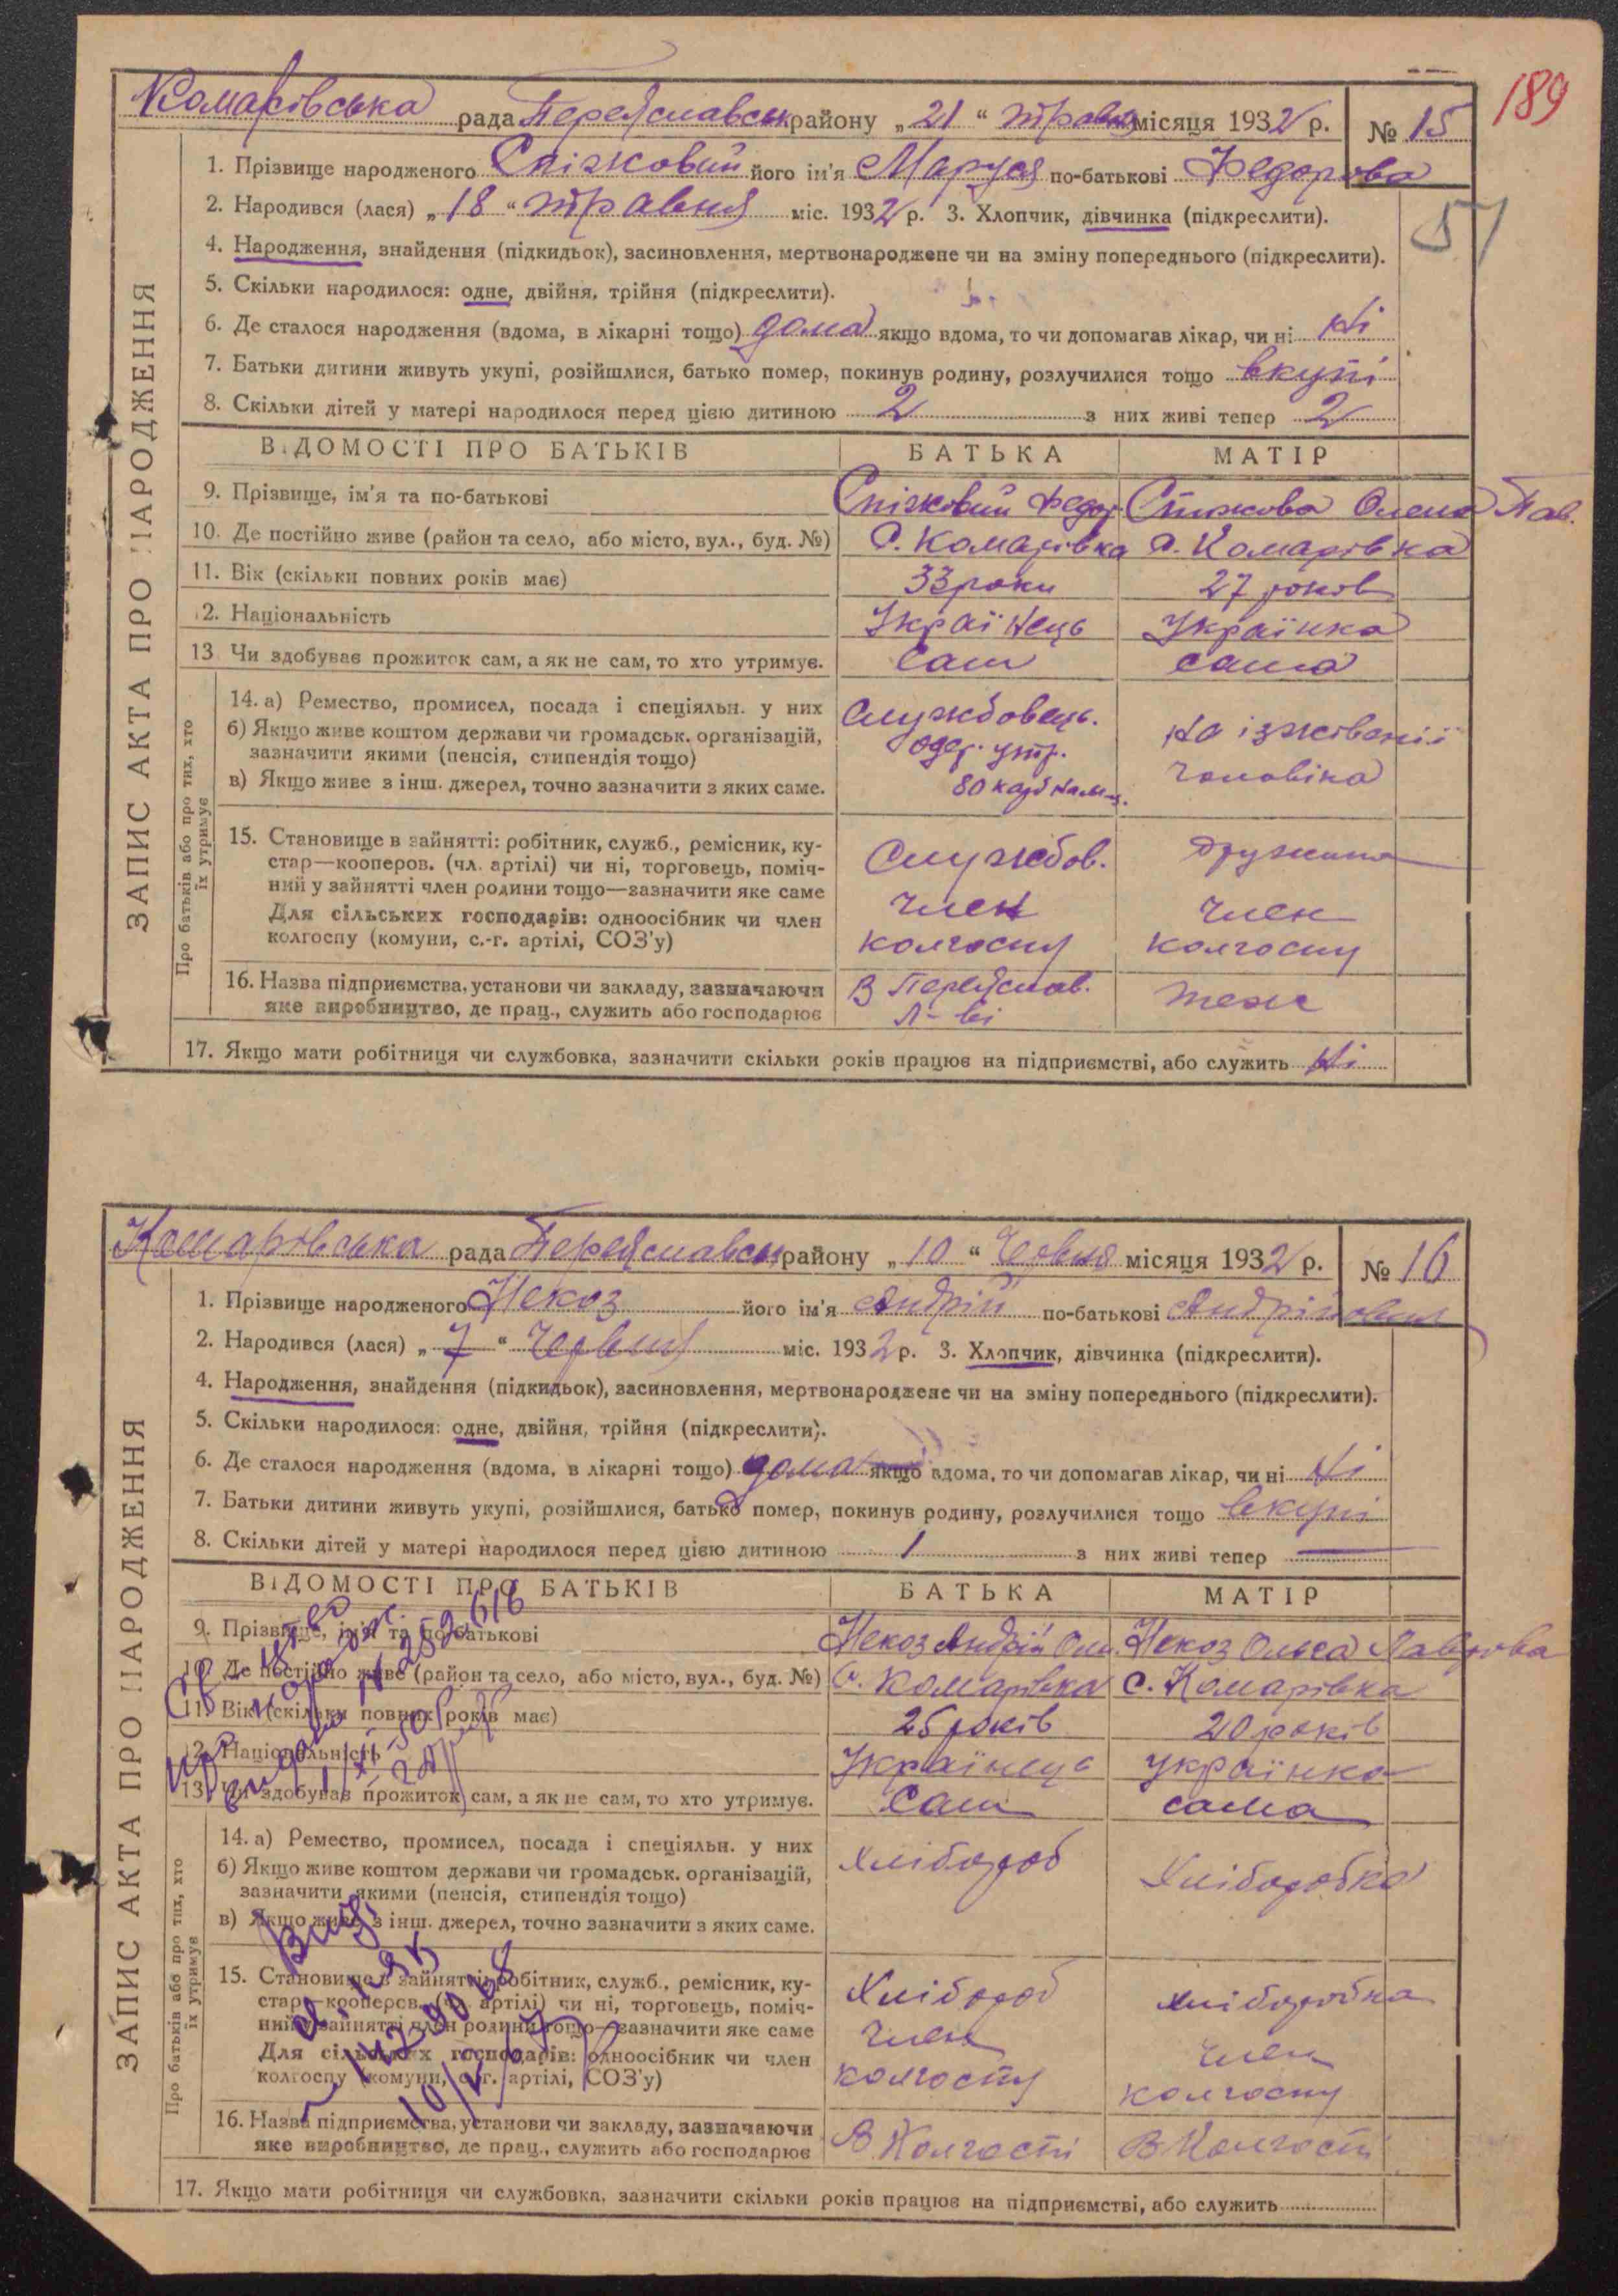 189
Комарівська рада Переяславськ району „21“ травня місяця 1932 р. № 15
1. Прізвище народженого Спіжовий його ім'я Маруся по-батькові Федорова
2. Народився (лася) „18“ травня міс. 1932 р. 3. Хлопчик, дівчинка (підкреслити).
57
4. Народження, знайдення (підкидьок), засиновлення, мертвонароджене чи на зміну попереднього (підкреслити).
5. Скільки народилося: одне, двійня, трійня (підкреслити).
6. Де сталося народження (вдома, в лікарні тощо) дома якщо вдома, то чи допомагав лікар, чи ні Ні
7. Батьки дитини живуть укупі, розійшлися, батько помер, покинув родину, розлучилися тощо вкупі
8. Скільки дітей у матері народилося перед цією дитиною 2 з них живі тепер 2
ЗАПИС АКТА ПРО НАРОДЖЕННЯ
ВІДОМОСТІ ПРО БАТЬКІВ БАТЬКА МАТІР
9. Прізвище, ім'я та по-батькові Спіжовий Федор Спіжова Олена Пав.
10. Де постійно живе (район та село, або місто, вул., буд. №) С. Комарівка С. Комарівка
11. Вік (скільки повних років має) 33 роки 27 років
12. Національність Українець Українка
13 Чи здобуває прожиток сам, а як не сам, то хто утримує. Сам сама
Про батьків або про тих, хто їх утримує
14. а) Ремество, промисел, посада і спеціяльн. у них Службовець.
б) Якщо живе коштом держави чи громадськ. організацій, зазначити якими (пенсія, стипендія тощо) на
в) Якщо живе з інш. джерел, точно зазначити з яких саме. 80 чоловіка
15. Становище в зайнятті: робітник, служб., ремісник, ку-
стар—кооперов. (чл. артілі) чи ні, торговець, поміч- Службов. дружина
ний у зайнятті член родини тощо—зазначити яке саме
Для сільських господарів: одноосібник чи член член член
колгоспу (комуни, с.-г. артілі, СОЗ'у) колгоспу колгоспу
16. Назва підприємства, установи чи закладу, зазначаючи В Переяслав. теж
яке виробництво, де прац., служить або господарює
17. Якщо мати робітниця чи службовка, зазначити скільки років працює на підприємстві, або служить Ні
Комарівська рада Переяславськ району „10“ Червня місяця 1932 р. № 16
1. Прізвище народженого Некоз його ім'я Андрій по-батькові Андрійович
2. Народився (лася) „7“ Червня міс. 1932 р. 3. Хлопчик, дівчинка (підкреслити).
4. Народження, знайдення (підкидьок), засиновлення, мертвонароджене чи на зміну попереднього (підкреслити).
5. Скільки народилося: одне, двійня, трійня (підкреслити).
6. Де сталося народження (вдома, в лікарні тощо) дома якщо вдома, то чи допомагав лікар, чи ні Ні
7. Батьки дитини живуть укупі, розійшлися, батько помер, покинув родину, розлучилися тощо вкупі
8. Скільки дітей у матері народилося перед цією дитиною 1 з них живі тепер —
ЗАПИС АКТА ПРО НАРОДЖЕННЯ
ВІДОМОСТІ ПРО БАТЬКІВ БАТЬКА МАТІР
9. Прізвище, ім'я та по-батькові Некоз Андрій Некоз Ольга Лаврова
10. Де постійно живе (район та село, або місто, вул., буд. №) С. Комарівка С. Комарівка
11. Вік (скільки повних років має) 25 років 20 років
12. Національність Українець українка
13. Чи здобуває прожиток сам, а як не сам, то хто утримує. Сам сама
Про батьків або про тих, хто їх утримує
14. а) Ремество, промисел, посада і спеціяльн. у них Хлібороб Хліборобка
б) Якщо живе коштом держави чи громадськ. організацій,
зазначити якими (пенсія, стипендія тощо)
в) Якщо живе з інш. джерел, точно зазначити з яких саме.
15. Становище в зайнятті: робітник, служб., ремісник, ку- Хлібороб хліборобка
стар—кооперов. (чл. артілі) чи ні, торговець, поміч-
ний у зайнятті член родини тощо—зазначити яке саме член член
Для сільських господарів: одноосібник чи член
колгоспу (комуни, с.-г. артілі, СОЗ'у) колгоспу колгоспу
16. Назва підприємства, установи чи закладу, зазначаючи В Колгоспі В Колгоспі
яке виробництво, де прац., служить або господарює
17. Якщо мати робітниця чи службовка, зазначити скільки років працює на підприємстві, або служить